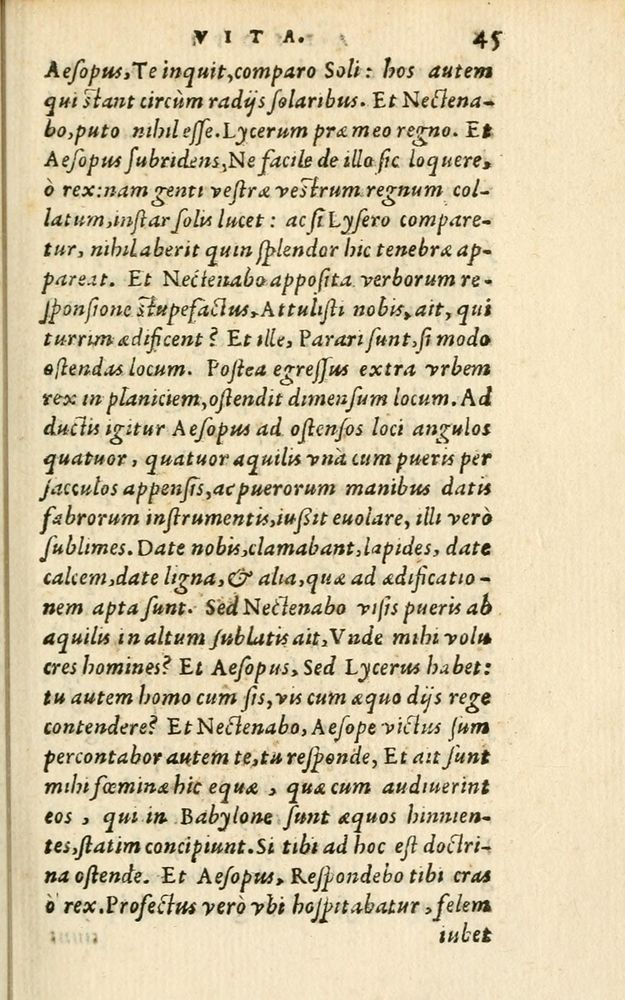 VITA. 45
Aeſopus, Te inquit, comparo Soli: hos autem
qui ſtant circùm radijs ſolaribus. Et Nectena-
bo, puto nihil eſſe. Lycerum præ meo regno. Et
Aeſopus ſubridens, Ne facile de illo ſic loquere,
ò rex: nam genti veſtræ veſtrum regnum col-
latum, inſtar ſolis lucet: ac ſi Lyſero compare-
tur, nihil aberit quin ſplendor hic tenebræ ap-
pareat. Et Nectenabo appoſita verborum re-
ſponſione ſtupefactus, Attuliſti nobis, ait, qui
turrim ædificent? Et ille, Parari ſunt, ſi modo
oſtendas locum. Poſtea egreſſus extra vrbem
rex in planiciem, oſtendit dimenſum locum. Ad
ductis igitur Aeſopus ad oſtenſos loci angulos
quatuor, quatuor aquilis vnà cum pueris per
ſacculos appenſis, ac puerorum manibus datis
fabrorum inſtrumentis, iußit euolare, illi verò
ſublimes. Date nobis, clamabant, lapides, date
calcem, date ligna, & alia, quæ ad ædificatio-
nem apta ſunt. Sed Nectenabo viſis pueris ab
aquilis in altum ſublatis ait, Vnde mihi volu
cres homines? Et Aeſopus, Sed Lycerus habet:
tu autem homo cum ſis, vis cum æquo dijs rege
contendere? Et Nectenabo, Aeſope victus ſum
percontabor autem te, tu reſponde, Et ait ſunt
mihi fœminæ hic equæ, quæ cum audiuerint
eos, qui in Babylone ſunt æquos hinnien-
tes, ſtatim concipiunt. Si tibi ad hoc eſt doctri-
na oſtende. Et Aeſopus, Reſpondebo tibi cras
ò rex. Profectus verò vbi hoſpitabatur, felem
iubet